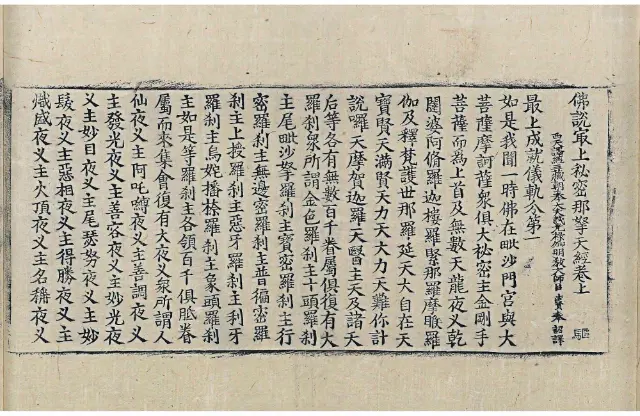 佛說最上秘密那拏天經卷上
西天譯經三藏朝奉大夫試光祿卿明教大師臣法賢奉 詔譯
驅
最上成就儀軌分第一
如是我聞一時佛在毗沙門宮與大
菩薩摩訶薩眾俱大祕密主金剛手
菩薩而為上首及無數天龍夜叉乾
闥婆阿脩羅迦樓羅緊那羅摩睺羅
伽及釋梵護世那羅延天大自在天
寶賢天滿賢天力天大力天難你計
說囉天摩賀迦羅天大醫主天及諸天
后等各有無數百千眷屬俱復有大
羅剎眾所謂金色羅剎主十頭羅剎
主尾毗沙拏羅剎主寶密羅剎主行
密羅剎主無邊密羅剎主普徧密羅
剎主上授羅剎主惡牙羅剎主利牙
羅剎主烏姹播捺羅剎主象頭羅剎
主如是等羅剎主各領百千俱胝眷
屬而來集會復有大夜叉眾所謂人
仙夜叉主阿吒嚩夜叉主善調夜叉
主發光夜叉主善容夜叉主妙光夜
叉主妙目夜叉主尾瑟努夜叉主妙
髮夜叉主惡相夜叉主得勝夜叉主
熾盛夜叉主火頂夜叉主名稱夜叉